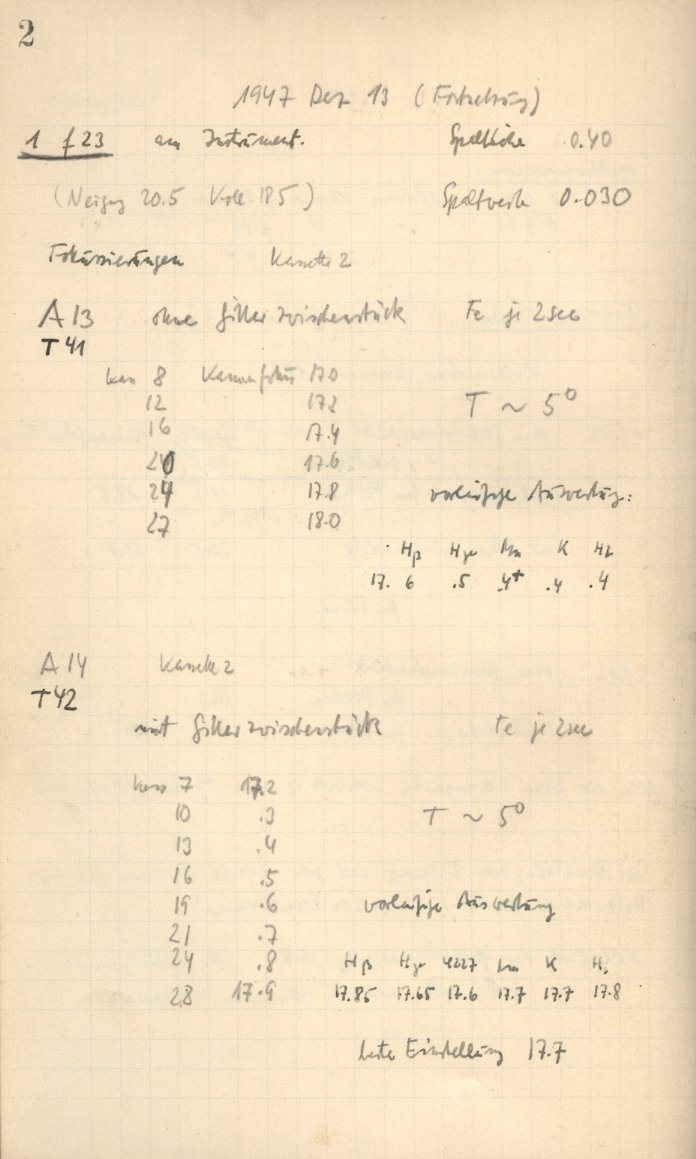 2
1947 Dez 13 (Fortsetzung)
1 f 23 am Instrument. Spalthöhe 0.40
(Neigung 20.5 Koll. 185) Spaltweite 0.030
Fokussierungen Kassette 2
A 13 ohne Gitterzwischenstück Fe je 2 sec
T 41
Kass 8 Kamerafokus 17.0
12 17.2
16 17.4
20 17.6
24 17.8
27 18.0
T ~ 5°
vorläufige Auswertung:
Hβ Hγ Mn K
17. 6 .5 .4+ .4 .4
A 14 Kassette 2
T 42
mit Gitterzwischenstück Fe je 2 sec
Kass 7 17.2
10 .3
13 .4
16 .5
19 .6
21 .7
24 .8
28 17.9
T ~ 5°
vorläufige Auswertung
Hβ Hγ 4227 Mn K
17.85 17.65 17.6 17.7 17.7 17.8
beste Einstellung 17.7